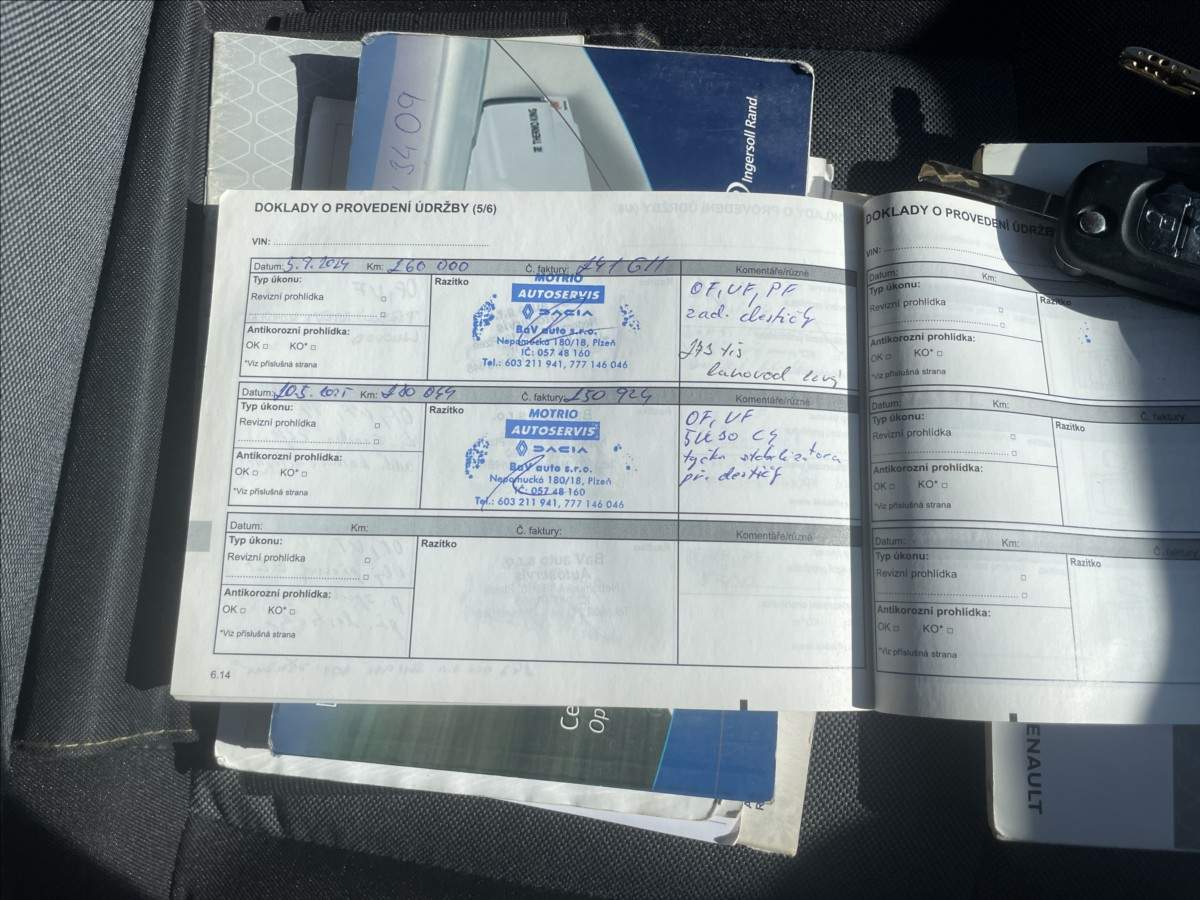 3409
THERMO KING
Ingersoll Rand
DOKLADY O PROVEDENÍ ÚDRŽBY (5/6)
VIN:
Datum: 5.9.2024 Km: 260 000 Č. faktury: 241 611 Komentáře/různé
Typ úkonu:
Revizní prohlídka
Antikorozní prohlídka:
OK KO*
*Viz příslušná strana
Razítko
MOTRIO
AUTOSERVIS
DACIA
BaV auto s.r.o.
Nepomucká 180/18, Plzeň
IČ: 057 48 160
Tel.: 603 211 941, 777 146 046
OF, UF, PF
zad. destičky
levý
Datum: Km: Č. faktury: 250 924 Komentáře/různé
Typ úkonu:
Revizní prohlídka
Antikorozní prohlídka:
OK KO*
*Viz příslušná strana
Razítko
MOTRIO
AUTOSERVIS
DACIA
BaV auto s.r.o.
Nepomucká 180/18, Plzeň
IČ: 057 48 160
Tel.: 603 211 941, 777 146 046
OF, UF
tyčka stabilizátora
př. destičky
Datum: Km: Č. faktury: Komentáře/různé
Typ úkonu:
Revizní prohlídka
Antikorozní prohlídka:
OK KO*
*Viz příslušná strana
Razítko
6.14
DOKLADY O PROVEDENÍ ÚDRŽBY
VIN:
Datum: Km:
Typ úkonu:
Revizní prohlídka
Antikorozní prohlídka:
OK KO*
*Viz příslušná strana
Datum: Km: Č. faktury:
Typ úkonu:
Revizní prohlídka
Antikorozní prohlídka:
OK KO*
*Viz příslušná strana
Razítko
Datum: Km: Č. faktury:
Typ úkonu:
Revizní prohlídka
Antikorozní prohlídka:
OK KO*
*Viz příslušná strana
Razítko
Ce
Op
ENAULT